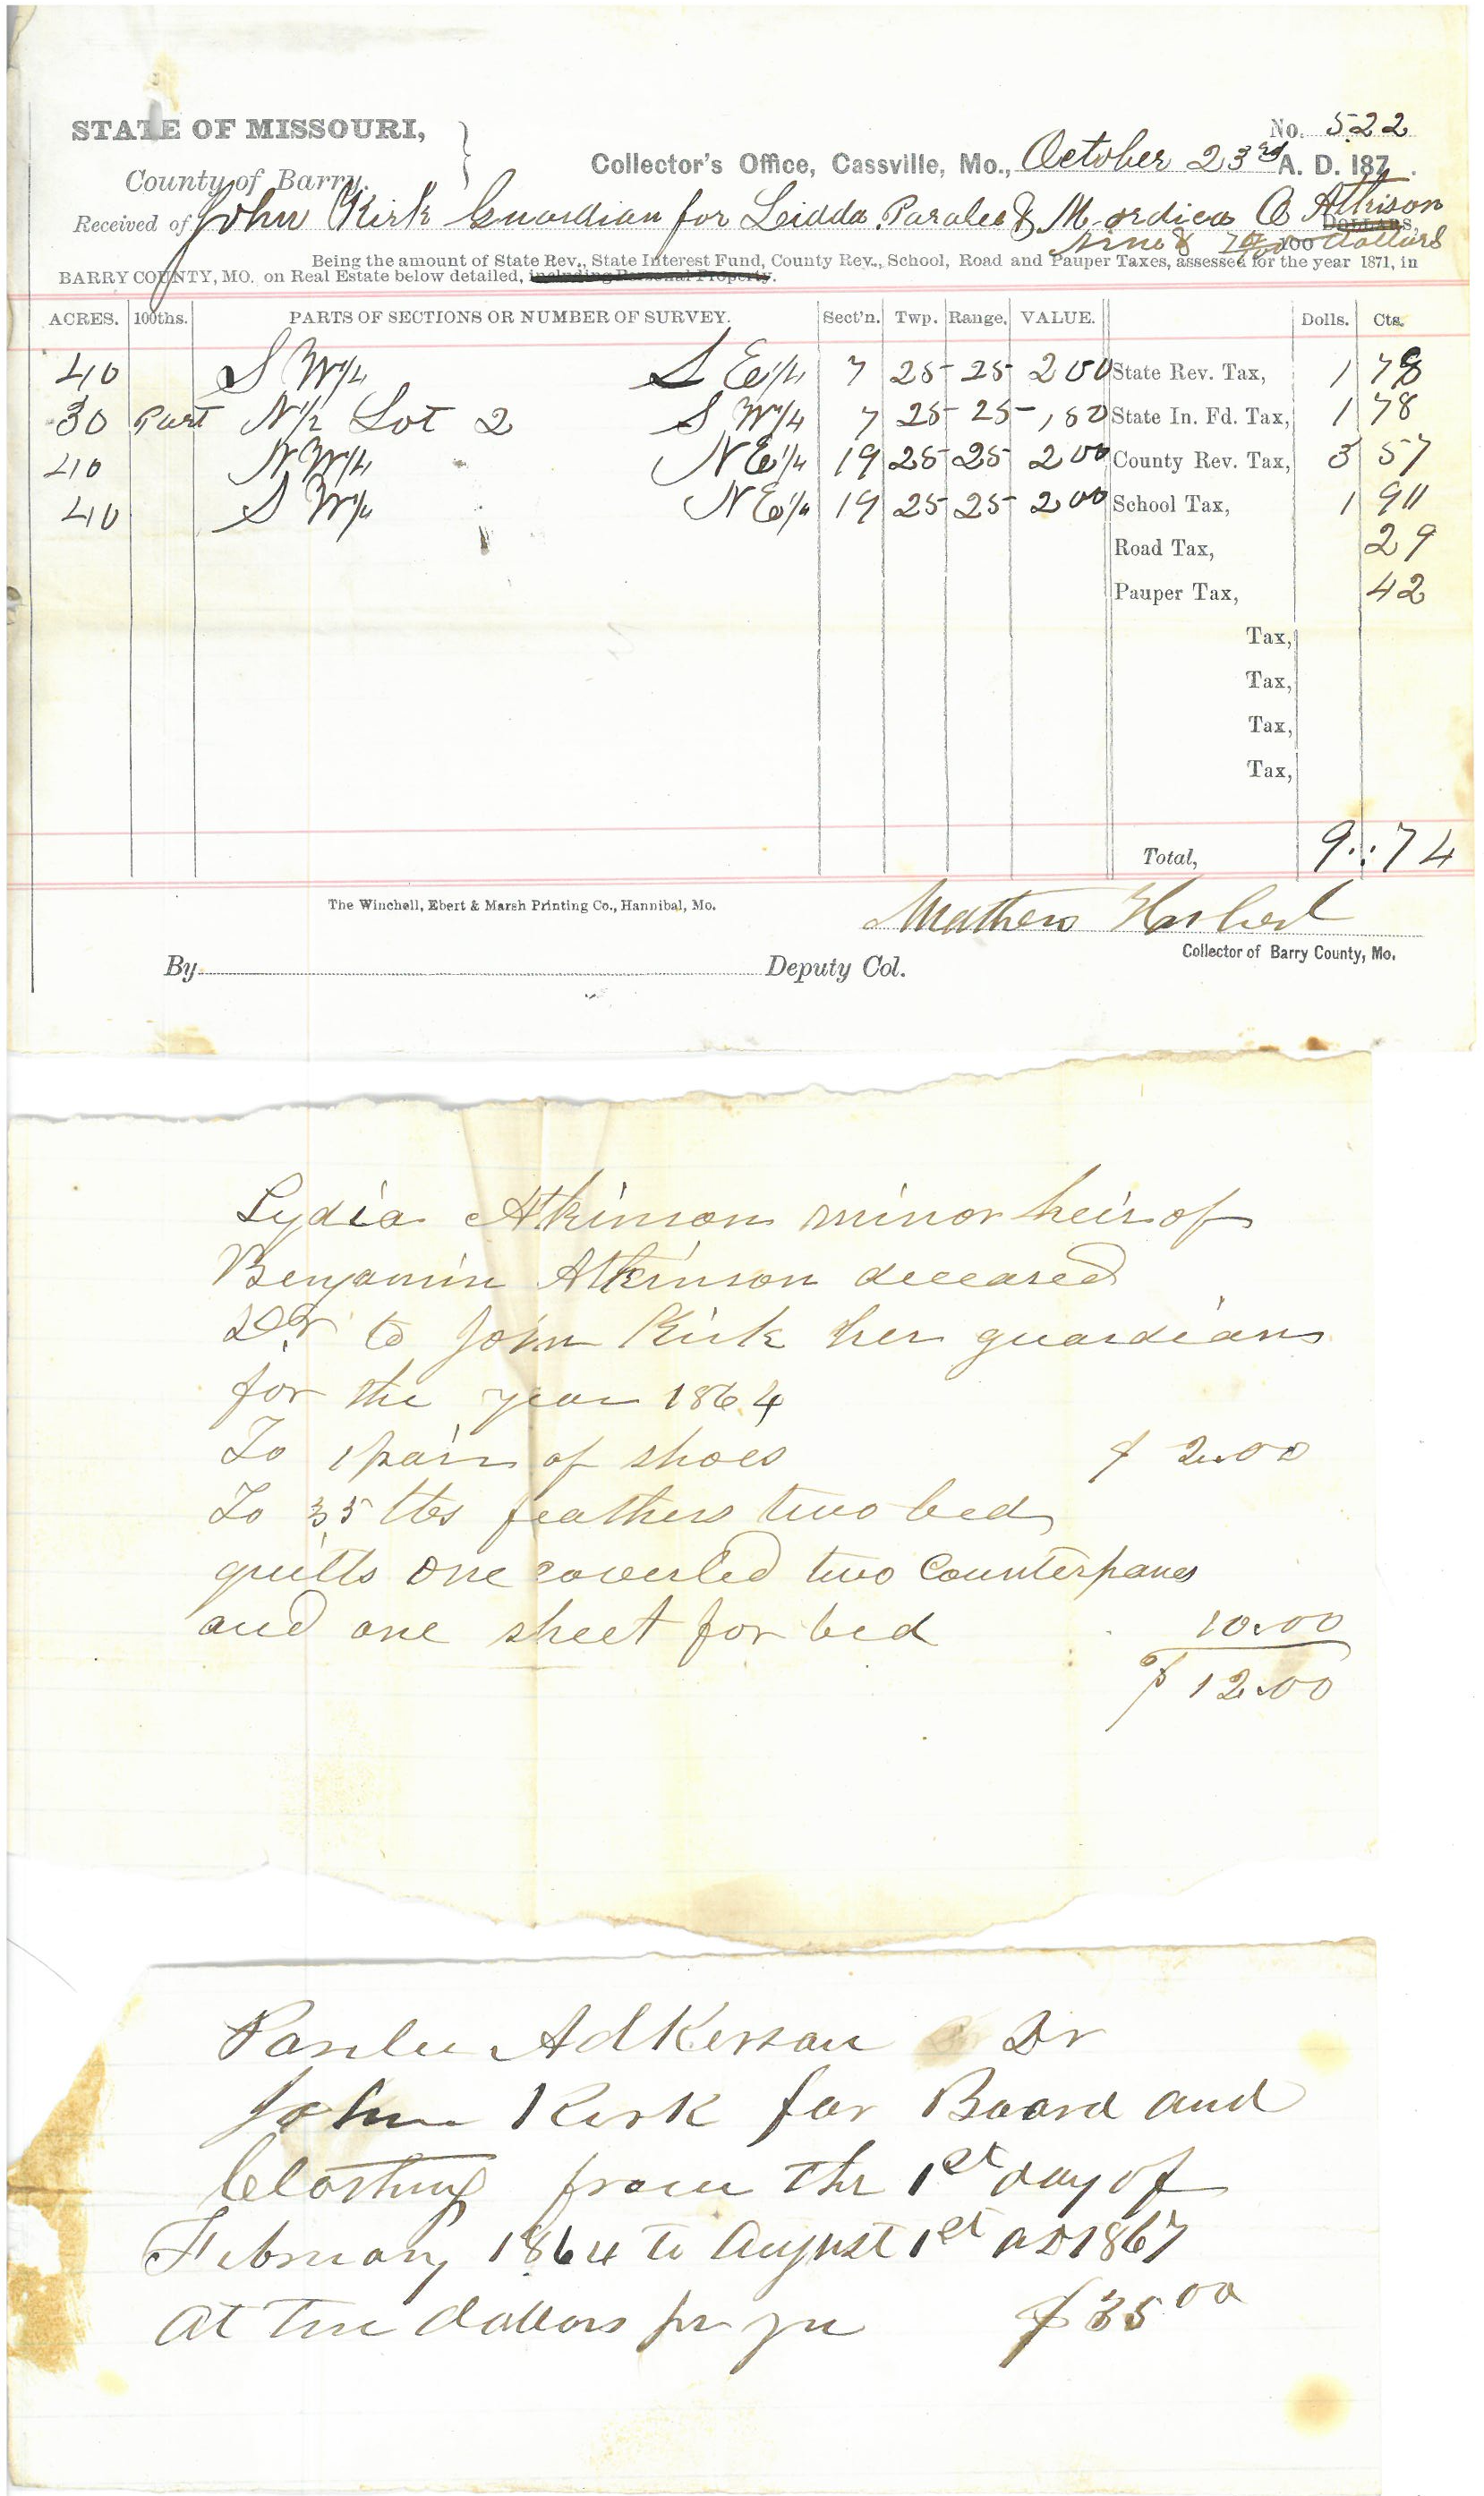 No. 522
STATE OF MISSOURI,
County of Barry.
Collector's Office, Cassville, Mo., October 23rd A. D. 187 .
Received of John Kirk Guardian for Leidda Paralee & Mordica A Atkison
DOLLARS,
Nine & 74/100 dollars
Being the amount of State Rev., State Interest Fund, County Rev., School, Road and Pauper Taxes, assessed for the year 1871, in
BARRY COUNTY, MO. on Real Estate below detailed, including Personal Property.
ACRES. 100ths. PARTS OF SECTIONS OR NUMBER OF SURVEY. Sect'n. Twp. Range. VALUE. Dolls. Cts.
40 S W1/4 S E1/4 7 25 25 200 State Rev. Tax, 1 78
30 Part N1/2 Lot 2 S W1/4 7 25 25 150 State In. Fd. Tax, 1 78
40 N W1/4 N E1/4 19 25 25 200 County Rev. Tax, 3 57
40 S W1/4 N E1/4 19 25 25 200 School Tax, 1 90
Road Tax, 29
Pauper Tax, 42
Tax,
Tax,
Tax,
Tax,
Total, 9 74
The Winchell, Ebert & Marsh Printing Co., Hannibal, Mo.
Mathew
Collector of Barry County, Mo.
By Deputy Col.
Lydia Atkinson minor heir of
Benjamin Atkinson deceased
Dr. to John Kirk her guardian
for the year 1864
To 1 pair of shoes $ 2.00
To 35 lbs feathers two bed
quilts one coverled two Counterpanes
and one sheet for bed 10.00
$ 12.00
Parlee Adkerson Dr
John Kirk for Board and
Clothing from the 1st day of
February 1864 to August 1st AD 1867
at ten dollars pr yr $ 35 00